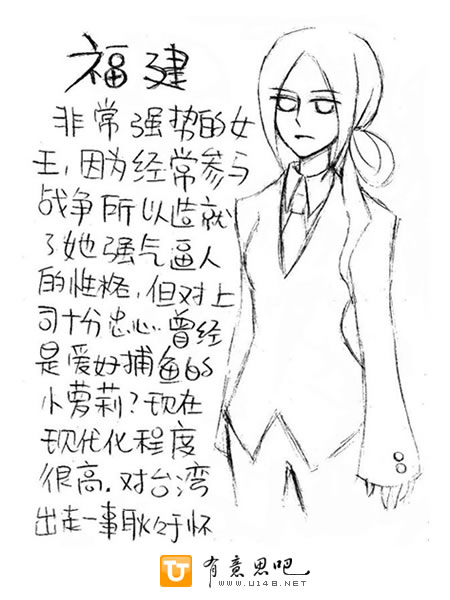 福建
非常强势的女
王,因为经常参与
战争所以造就
了她强气逼人
的性格,但对上
司十分忠心.曾经
是爱好捕鱼的
小萝莉?现在
现代化程度
很高.对台湾
出走一事耿々于怀
有意思吧
www.U148.NET